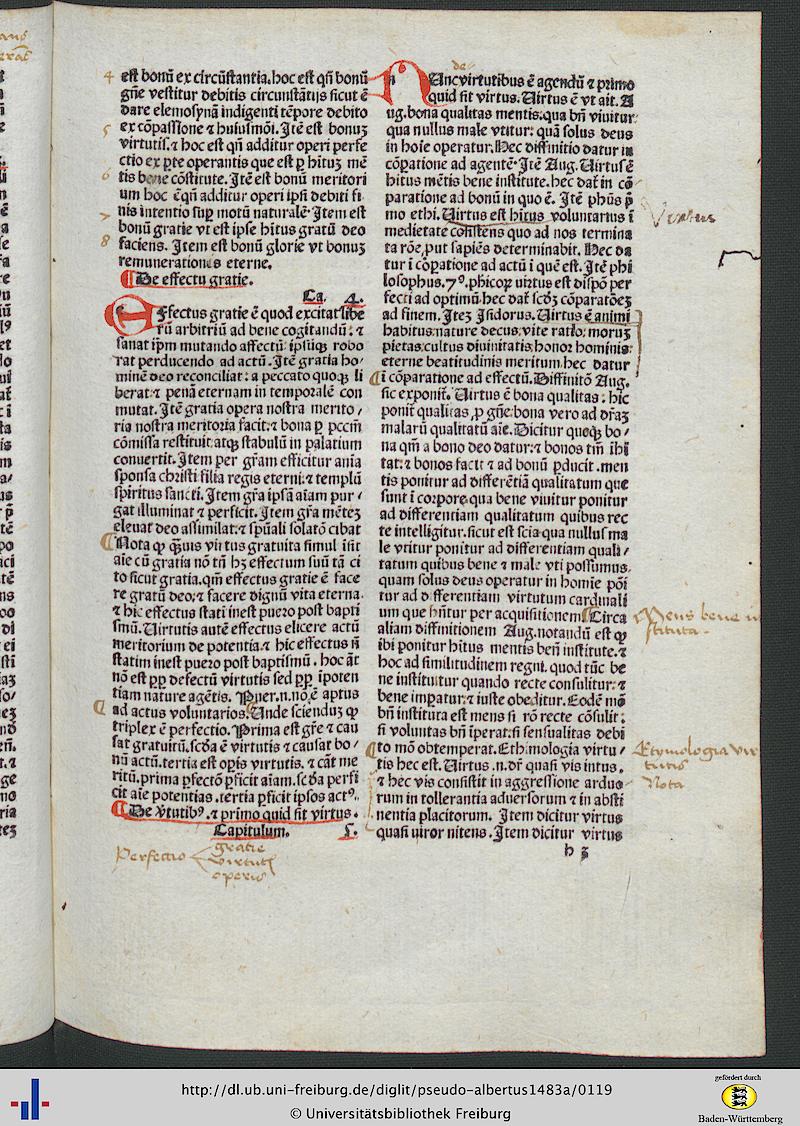 est bonū ex circūstantia. hoc est qñ bonū
gñe vestitur debitis circunstātijs sicut ē
dare elemosynā indigenti tēpore debito
ex cōpassione ⁊ huiusmōi. Itē est bonuȝ
virtutis. ⁊ hoc est qñ additur operi perfe
ctio ex pte operantis que est p hituȝ mē
tis bene cōstitute. Itē est bonū meritori
um hoc ē qñ additur operi ipsi debiti fi-
nis intentio sup motū naturalē. Item est
bonū gratie vt est ipse hitus gratū deo
faciens. Item est bonū glorie vt bonuȝ
remunerationis eterne.
De effectu gratie.
Ca. 4.
Effectus gratie ē quod excitat libe
rū arbitriū ad bene cogitandū: ⁊
sanat ipm mutando affectū: ipsūqȝ robo
rat perducendo ad actū. Itē gratia ho-
minē deo reconciliat: a peccato quoqȝ li
berat: ⁊ penā eternam in tempozalē con
mutat. Itē gratia opera nostra merito/
ria nostra meritoria facit: ⁊ bona p pccm
cōmissa restituit: atqȝ stabulū in palatium
conuertit. Item per grām efficitur anīa
sponsa christi filia regis eterni: ⁊ templū
spiritus sancti. Item gr̄a ipsā aīam pur/
gat illuminat ⁊ perficit. Item gr̄a mētez
eleuat deo assimilat: ⁊ spūali solatō cibat
Nota qp quis virtus gratuita simul īsit
aīe cū gratia nō tñ hȝ effectum suū tā ci
to sicut gratia. qm̄ effectus gratie ē face
re gratū deo: ⁊ facere dignū vita eterna.
⁊ hic effectus stati inest puero post bapti
smū. Uirtutis autē effectus elicere actū
meritorium de potentia: ⁊ hic effectus ñ
statim inest puero post baptismū. hoc āt
nō est pp defectū virtutis sed pp īpoten
tiam nature agētis. Puer. n. nō ē aptus
ad actus voluntarios. Unde sciendum qp
triplex ē perfectio. Prima est gr̄e ⁊ cau
sat gratuitū. scda ē virtutis ⁊ causat bo/
nū actū. tertia est opis virtutis. ⁊ cāt me
ritū. prima pfectō pficit aīam. scda perfi
cit aīe potentias. tertia pficit ipsos act9.
De Virtutib9. ⁊ primo quid sit virtus.
Capitulum. I.
Perfectio gratie
virtutis
operis
de
Nunc virtutibus ē agendū ⁊ primo
quid sit virtus. Uirtus ē vt ait. A
ug. bona qualitas mentis. qua bñ viuitur
qua nullus male vtitur: quā solus deus
in hoīe operatur. Hec diffinitio datur in
cōparatione ad agentē. Itē Aug. Uirtus ē
hitus mētis bene institute. hec dat̄ in cō
paratione ad bonū in quo ē. Itē phūs p̄
mo ethi. Uirtus est hitus voluntarius ī
medietate cōsistens quo ad nos termina
ta rōe, put sapiēs determinabit. Hec da
tur ī cōparatione ad actū ī quē est. Itē phi
losophus. 7°. phicoꝝ virtus est dispō per
fecti ad optimū. hec dat̄ scdȝ cōparatōez
ad finem. Iteȝ Isidorus. Uirtus ē animi
habitus: nature decus: vite ratio: moruȝ
pietas: cultus diuinitatis: honor hominis:
eterne beatitudinis meritum. hec datur
ī cōparatione ad effectū. Diffinitō Aug.
sic exponit̄. Uirtus ē bona qualitas: hic
ponit̄ qualitas, p gñe: bona vero ad dr̄az
malarū qualitatū aīe. Dicitur quoqȝ bo/
na qm̄ a bono deo datur: ⁊ bonos tm̄ ihi
tat: ⁊ bonos facit ⁊ ad bonū pducit. men
tis ponitur ad differētiā qualitatum que
sunt ī corpore. qua bene viuitur ponitur
ad differentiam qualitatum quibus rec
te intelligitur. sicut est scīa: qua nullus ma
le vtitur ponitur ad differentiam quali/
tatum quibus bene ⁊ male vti possumus.
quam solus deus operatur in homīe pōi
tur ad differentiam virtutum cardinali
um que hñtur per acquisitionem. Circa
aliam diffinitionem Aug. notandū est qp
ibi ponitur hitus mentis beñ institute. ⁊
hoc ad similitudinem regni. quod tūc be
ne instituitur quando recte consulitur: ⁊
bene impatur: ⁊ iuste obeditur. Eodē mō
bñ instituta est mens si rō recte cōsulit:
si voluntas bñ īperat: si sensualitas debi
to mō obtemperat. Ethimologia virtu/
tis hec est. Uirtus. n. dr̄ quasi vis intus.
⁊ hec vis consistit in aggressione arduo-
rum in tollerantia aduersorum ⁊ in absti
nentia placitorum. Item dicitur virtus
quasi uiror nitens. Item dicitur virtus
h 3
Virtus
Mens bene in
stituta.
Etymologia vir
tutis
Nota
4
5
6
7
8
http://dl.ub.uni-freiburg.de/diglit/pseudo-albertus1483a/0119
© Universitätsbibliothek Freiburg
gefördert durch
Baden-Württemberg